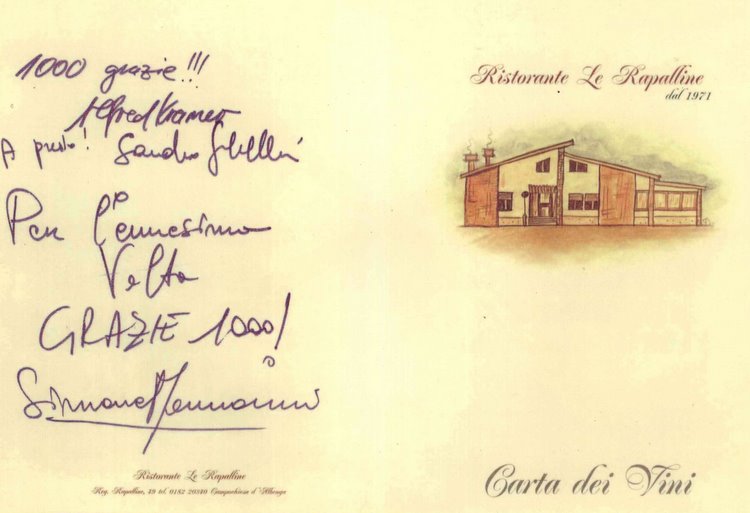 1000 grazie!!!
Alfred Kramer
A presto! Sandro Gibellini
Per l'ennesima
Volta
GRAZIE 1000!
Simone Monnanni
Ristorante Le Rapalline
Reg. Rapalline, 49 tel. 0182 20340 Campochiesa d'Albenga
Ristorante Le Rapalline
dal 1971
Carta dei Vini